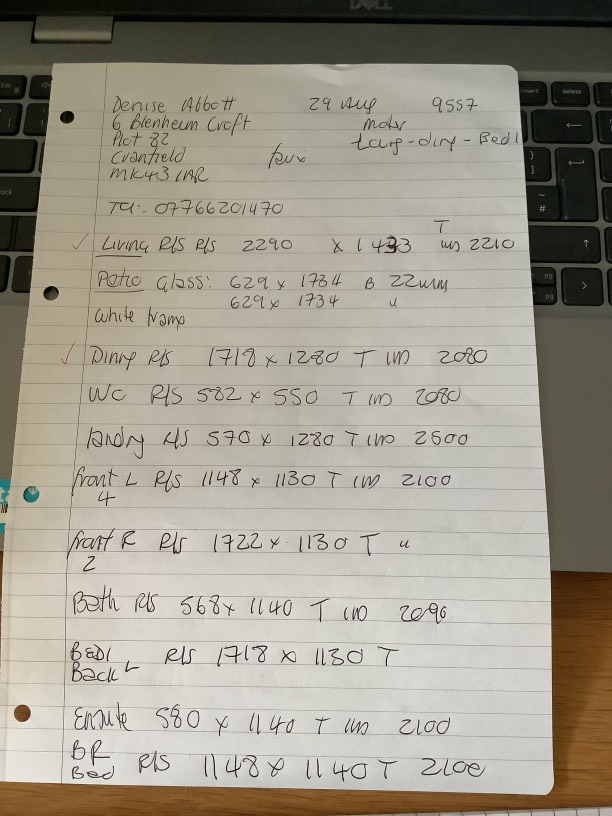 DELL
Denise Abbott 29 Aug 9557
6 Blenheim Croft motor
Plot 82 Larg-diny-Bed1
Cranfield
MK43 1AR
Tel:. 07766201470
Living R/S R/S 2290 x 1433 T in 2210
Patio Glass: 629 x 1734 B 22mm
629 x 1734 "
White frame
Dining R/S 1718 x 1280 T in 2080
WC R/S 582 x 550 T in 2080
landry R/S 570 x 1280 T in 2500
front L R/S 1148 x 1130 T in 2100
4
front R R/S 1722 x 1130 T "
2
Bath R/S 568 x 1140 T in 2090
BED1 R/S 1718 x 1130 T
Back L
Ensuite 580 x 1140 T in 2100
BR R/S 1148 x 1140 T 2100
Bed